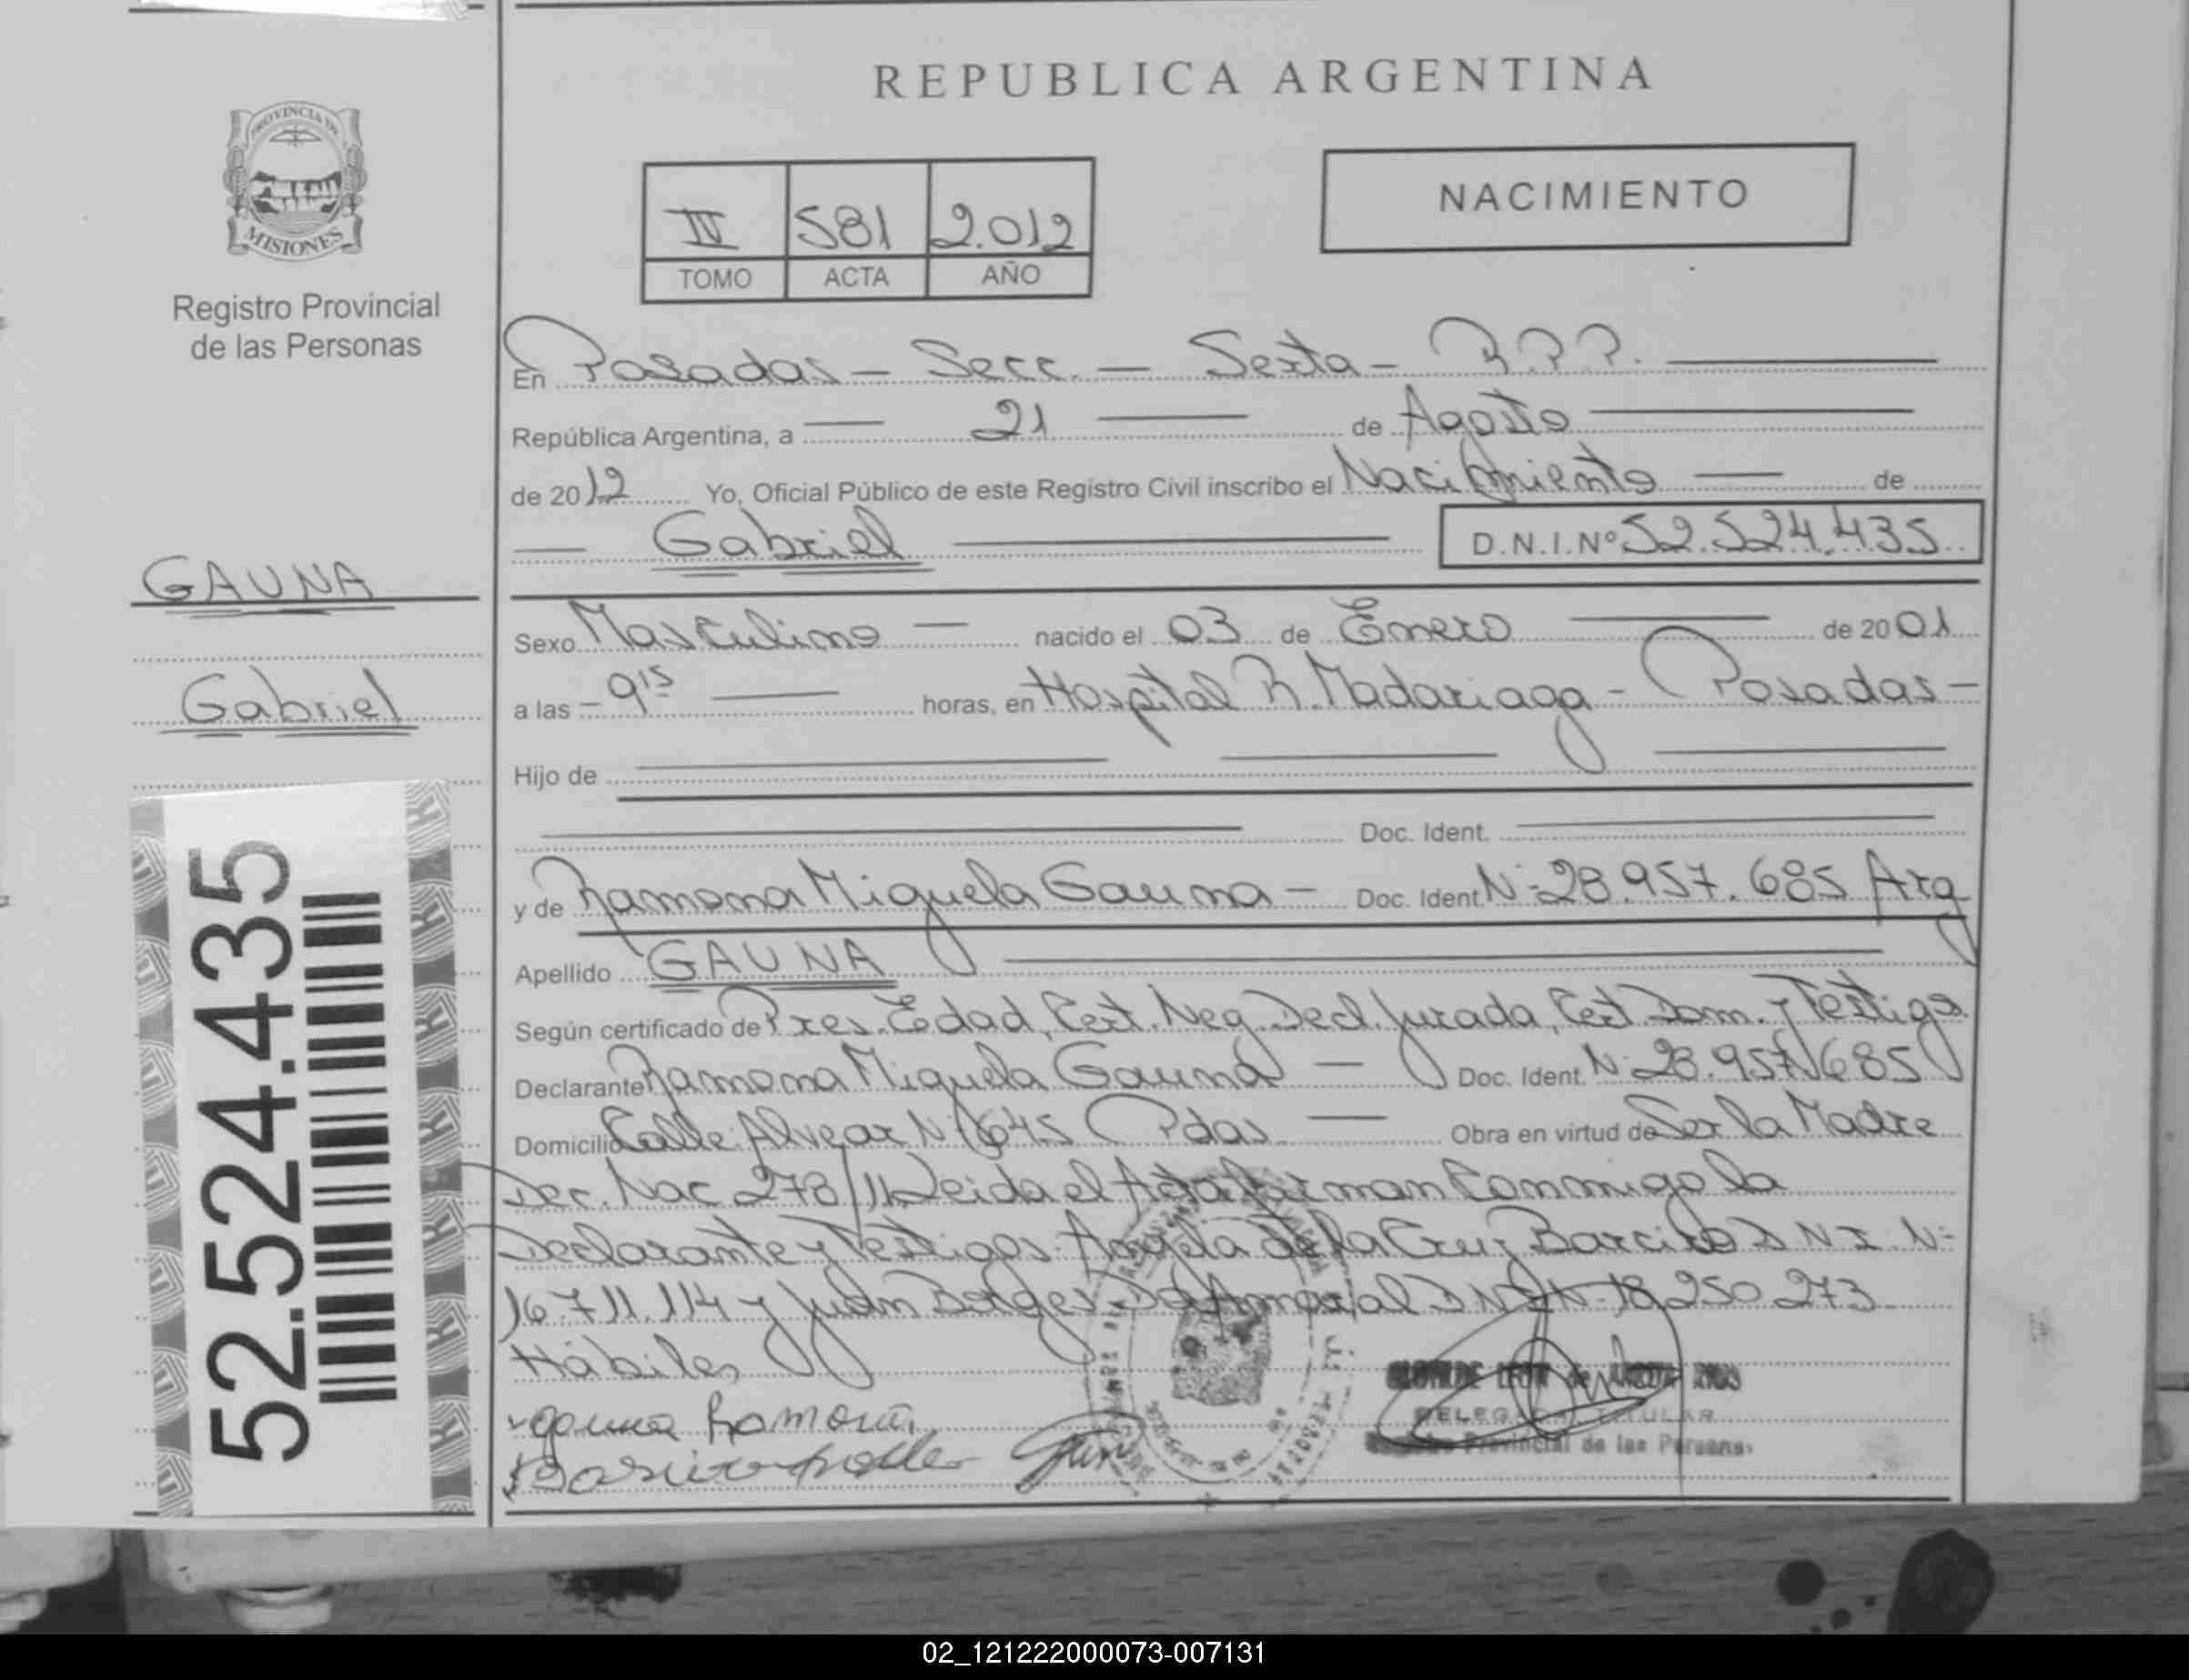 REPUBLICA ARGENTINA
PROVINCIA DE
MISIONES
Registro Provincial
de las Personas
NACIMIENTO
IV 581 2.012
TOMO ACTA AÑO
En Posadas - Secc. - Sexta - R.P.P.
República Argentina, a 21 de Agosto
de 2012 Yo, Oficial Público de este Registro Civil inscribo el Nacimiento de
Gabriel D.N.I.Nº 52.524.435
GAUNA
Gabriel
52.524.435
Sexo Masculino nacido el 03 de Enero de 2001
a las 9 15 horas, en Hospital R. Madariaga - Posadas -
Hijo de
Doc. Ident.
y de Ramona Miguela Gauna - Doc. Ident N: 28.957.685 Arg
Apellido GAUNA
Según certificado de Pres. Edad, Cert. Neg. Decl. Jurada, Cert Dom. y Testigo
Declarante Ramona Miguela Gauna - Doc. Ident. N: 28.957.685
Domicilio Calle Alvear Nº 1645 Pdas Obra en virtud de Ser la Madre
Dec. Nac 278/11 Leida el Acta firman Conmigo la
Declarante y Testigos: Angela de la Cruz D N I N:
16.711.114 y Juan Borges D N I N: 18.250.273
Hábiles
Gauna Ramona
DELEGADA TITULAR
Provincial de las Personas
02_121222000073-007131